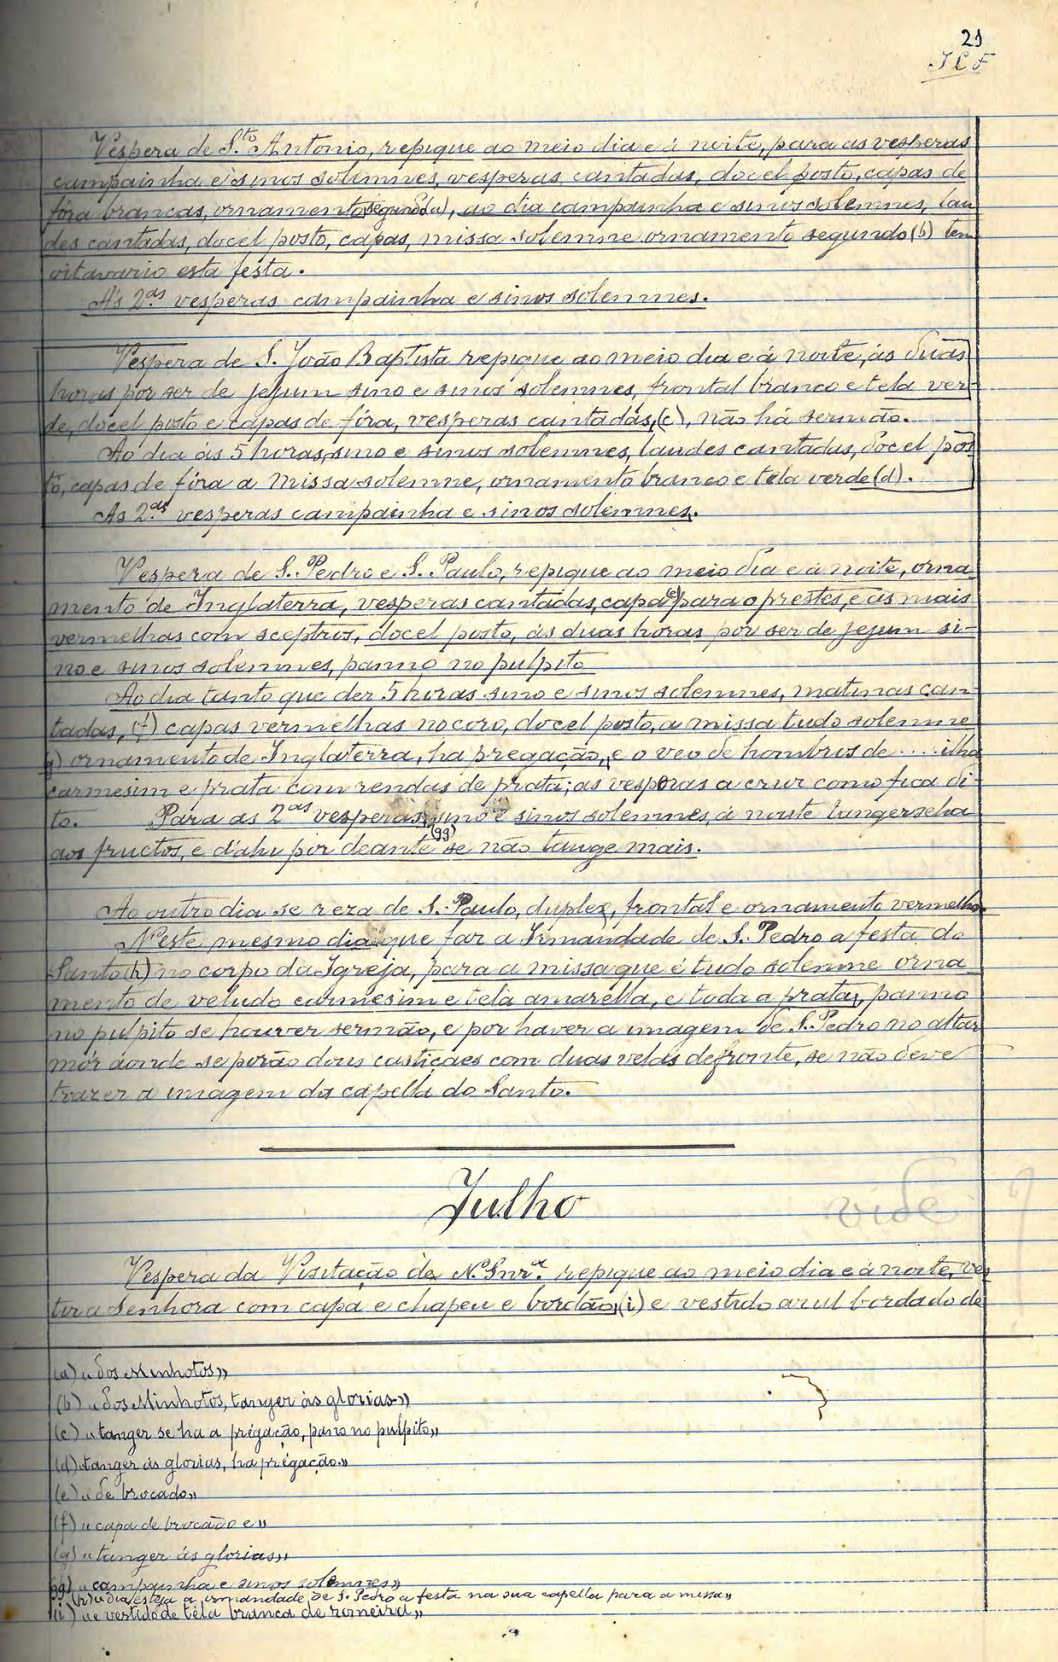 21
J C F
Vespera de S.to Antonio, repique ao meio dia e á noite, para as vesperas
campainha e sinos solemnes, vesperas, cantadas, docel posto, capas de
fóra brancas, ornamento segundo (a), ao dia campainha e sinos solemnes, lau
des cantadas, docel posto, capas, missa solemne ornamento segundo (b) tem
oitavario esta festa.
A's 2.as vesperas campainha e sinos solemnes.
Vespera de S. João Baptista repique ao meio dia e á noite, ás duas
horas por ser de jejum sino e sinos solemnes, frontal branco e tela ver-
de, docel posto e capas de fóra, vesperas cantadas, (c), não há sermão.
Ao dia ás 5 horas, sino e sinos solemnes, laudes cantadas, docel pos
to, capas de fóra a missa solemne, ornamento branco e tela verde (d).
As 2.as vesperas campainha e sinos solemnes.
Vespera de S. Pedro e S. Paulo, repique ao meio dia e á noite, orna
mento de Inglaterra, vesperas cantadas, capa (e) para o prestes, e as mais
vermelhas com sceptros, docel posto, ás duas horas por ser de jejum si-
no e sinos solemnes, panno no pulpito
Ao dia tanto que der 5 horas sino e sinos solemnes, matinas can
tadas, (f) capas vermelhas no coro, docel posto, a missa tudo solemne
g) ornamento de Inglaterra, ha pregação, e o veo de hombros de ....ilha
carmesim e prata com rendas de prata; as vesperas a cruz como fica di-
to. Para as 2.as vesperas, sino e sinos solemnes, á noute tangerseha
aos fructos, e d'ahi por deante (gg) se não tange mais.
Ao outro dia se reza de S. Paulo, duplex, frontal e ornamento vermelho.
N'este mesmo dia que faz a Irmandade de S. Pedro a festa do
Santo (h) no corpo da Igreja, para a missa que é tudo solemne orna
mento de veludo carmesim e tela amarella, e toda a prata, panno
no pulpito se houver sermão, e por haver a imagem de S. Pedro no altar
mór aonde se porão dous castiçaes com duas velas defronte, se não deve
trazer a imagem da capella do Santo.
Julho
vide ?
Vespera da Visitação de N.a Snr.a repique ao meio dia e á noite, ves
tir a Senhora com capa e chapeu e bordão, (i) e vestido azul bordado de
(a) « dos Minhotos »
(b) « dos Minhotos, tanger ás glorias »
(c) « tanger se ha a prégação, pano no pulpito »
(d) « tanger ás glorias, ha prégação »
(e) « de brocado »
(f) « capa de brocado e »
(g) « tanger ás glorias »
(gg) « campainha e sinos solemnes »
(h) « dia esteja a irmandade de S. Pedro a festa na sua capella para a missa »
(i) « e vestido de téla branca de romeira »